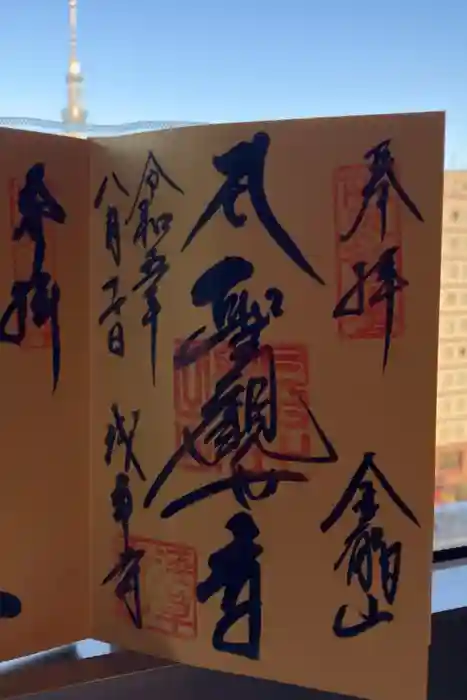 奉拝
金龍山
聖観世音
令和五年
八月二十日
浅草寺
奉拝